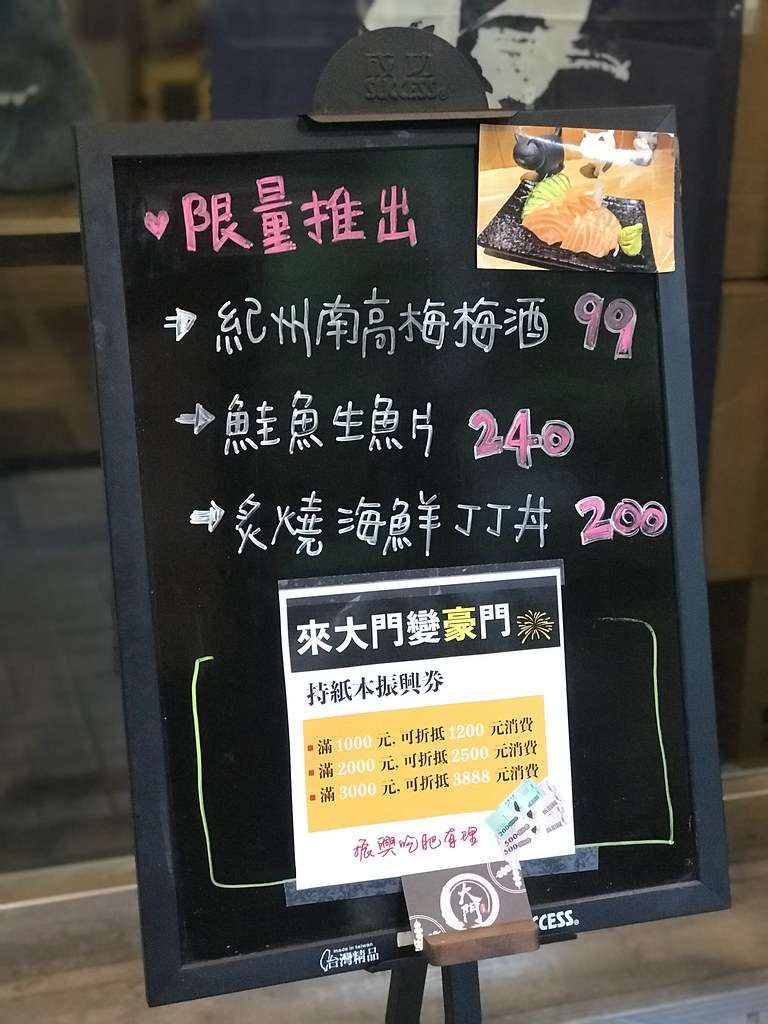 成功
SUCCESS®
♥限量推出
紀州南高梅梅酒 99
鮭魚生魚片 240
炙燒海鮮丁丁丼 200
來大門變豪門
持紙本振興券
滿 1000 元, 可折抵 1200 元消費
滿 2000 元, 可折抵 2500 元消費
滿 3000 元, 可折抵 3888 元消費
200
500
500
振興吃肥有理
大門
CCESS®
made in taiwan
台灣精品